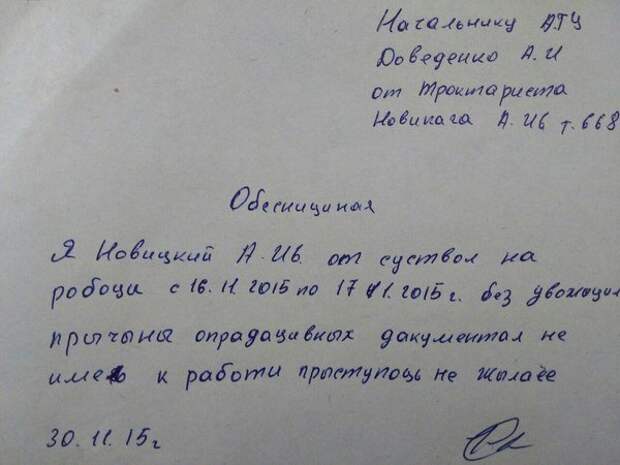 Начальнику АТЦ
Доведенко А.И
от трактариста
Новикага А.Ив т.668
Обеснициная
Я Новицкий А.Ив. от суствол на
робоци с 16.11.2015 по 17.11.2015г. без двожация
причыны опрадацивных дакументал не
имею к работи прыступоць не жылаее
30.11.15г